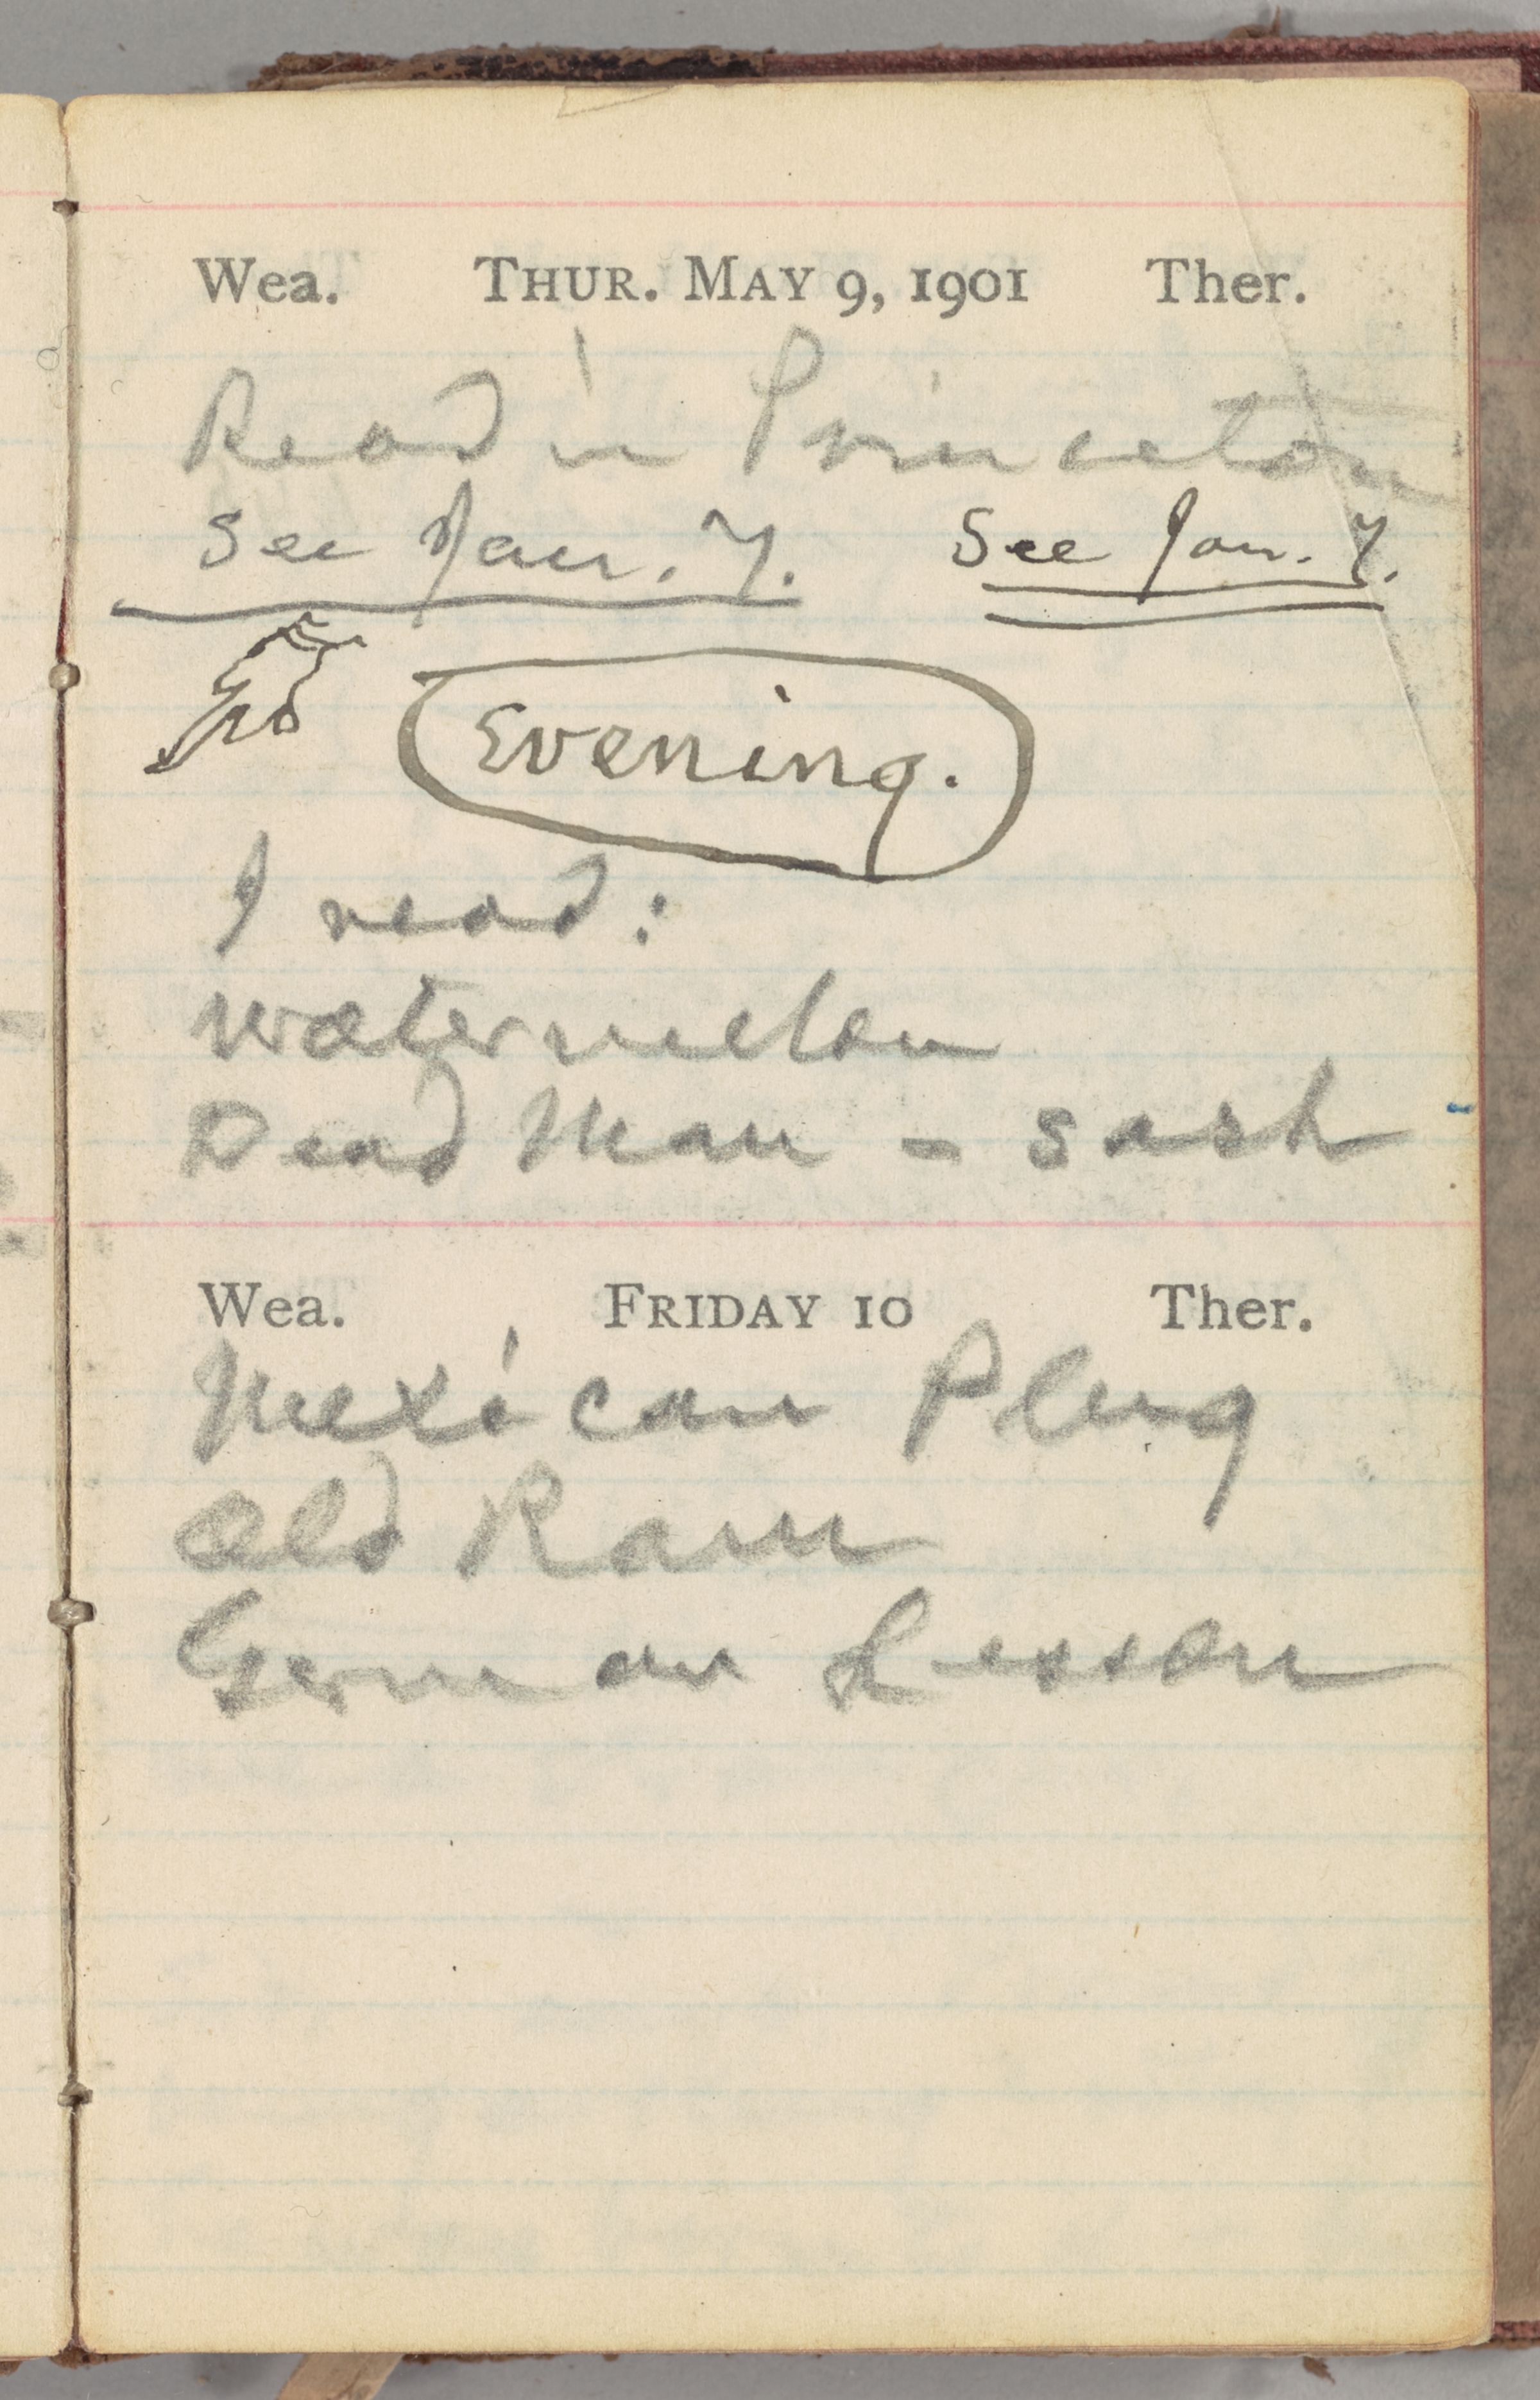 Wea. THUR. MAY 9, 1901 Ther.
Read in Princeton
See Jan. 7. See Jan. 7.
Evening.
I read:
Watermelon
Dead Man - sash
Wea. FRIDAY 10 Ther.
Mexican Plug
Old Ram
German Lesson